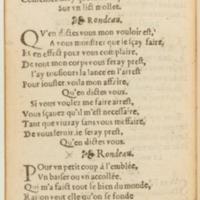 Sur vn lict mollet.
Rondeau.
QV'en dictes vous mon vouloir est,
A vous monstrer que ie sçay faire,
Et est prest pour vous complaire,
De tout mon corps vous seray prest,
I'ay tousiours la lance en l'arrest
Pour iouster voila mon affaire,
Qu'en dictes vous.
Si vous voulez me faire arrest,
Vous sçauez qu'il m'est necessaire,
Tant que viuray sans vous meffaire,
De vous seruir ie seray prest,
Qu'en dictes vous.
Rondeau.
POur vn petit coup à l'emblée,
Vn baiser ou vn accollée.
Qui m'a faict tout le bien du monde,
Raison veut elle qu'on se fonde